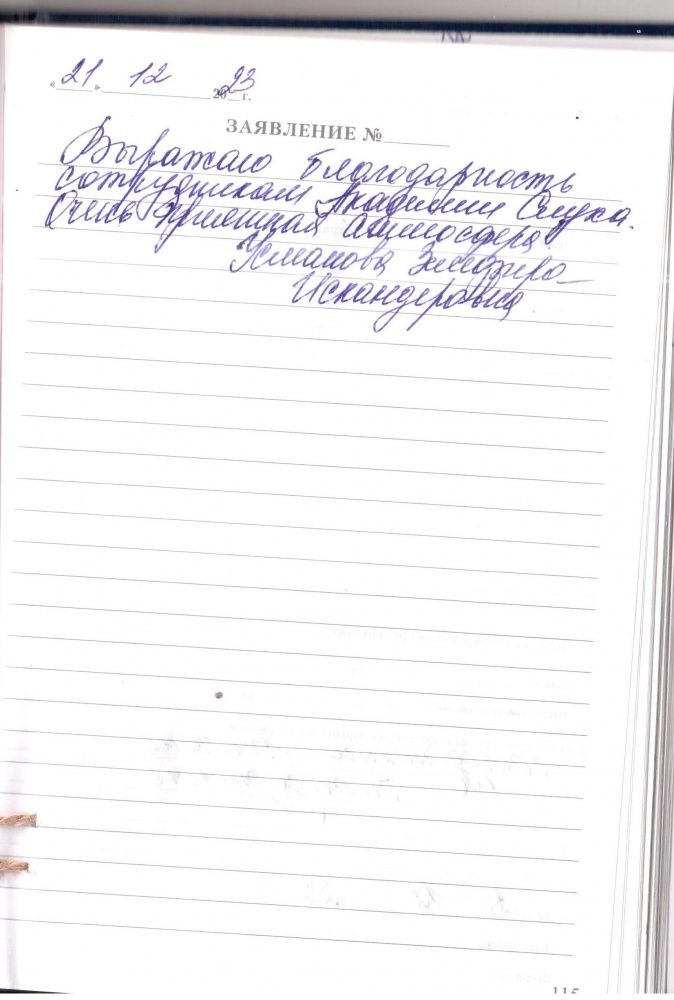 « 21 » 12 2023 г.
ЗАЯВЛЕНИЕ №
Выражаю благодарность
сотрудникам Академии Слуха.
Очень приятная атмосфера
Усманова Эльвира
Искандеровна
115